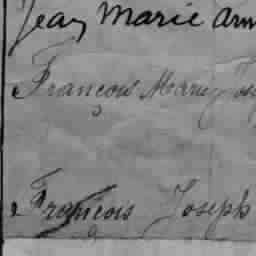 Jean Marie Arm
François Marie Jos
François Joseph